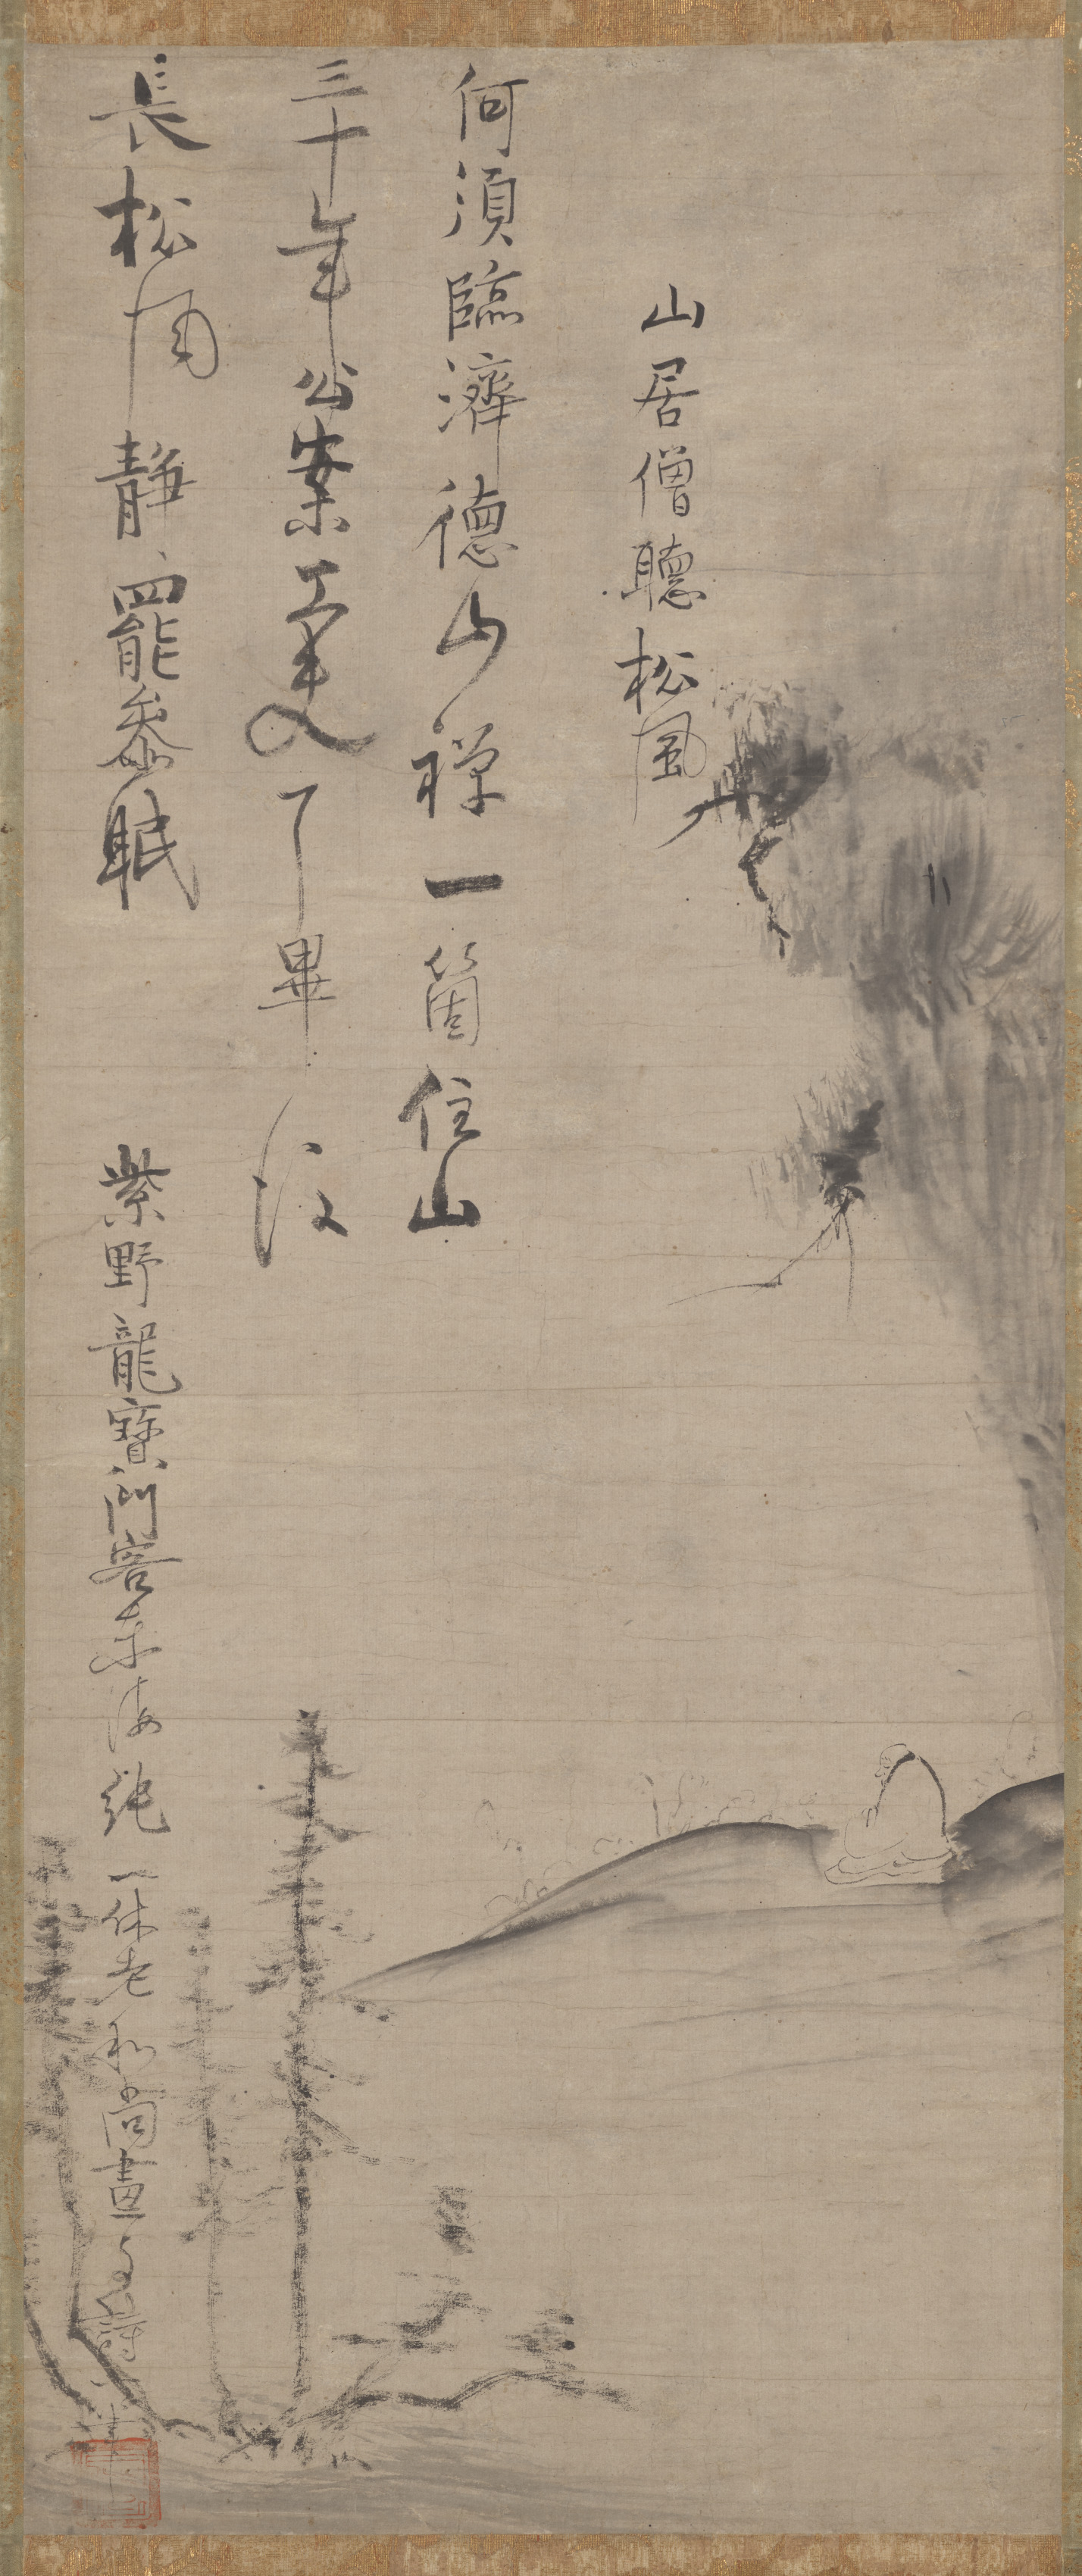 山居僧聽松風
何須臨濟德山禅一箇住山
三十年公案工夫了畢後
長松風静罷參眠
紫野龍寶門客東海純一休老和尚畫 詩